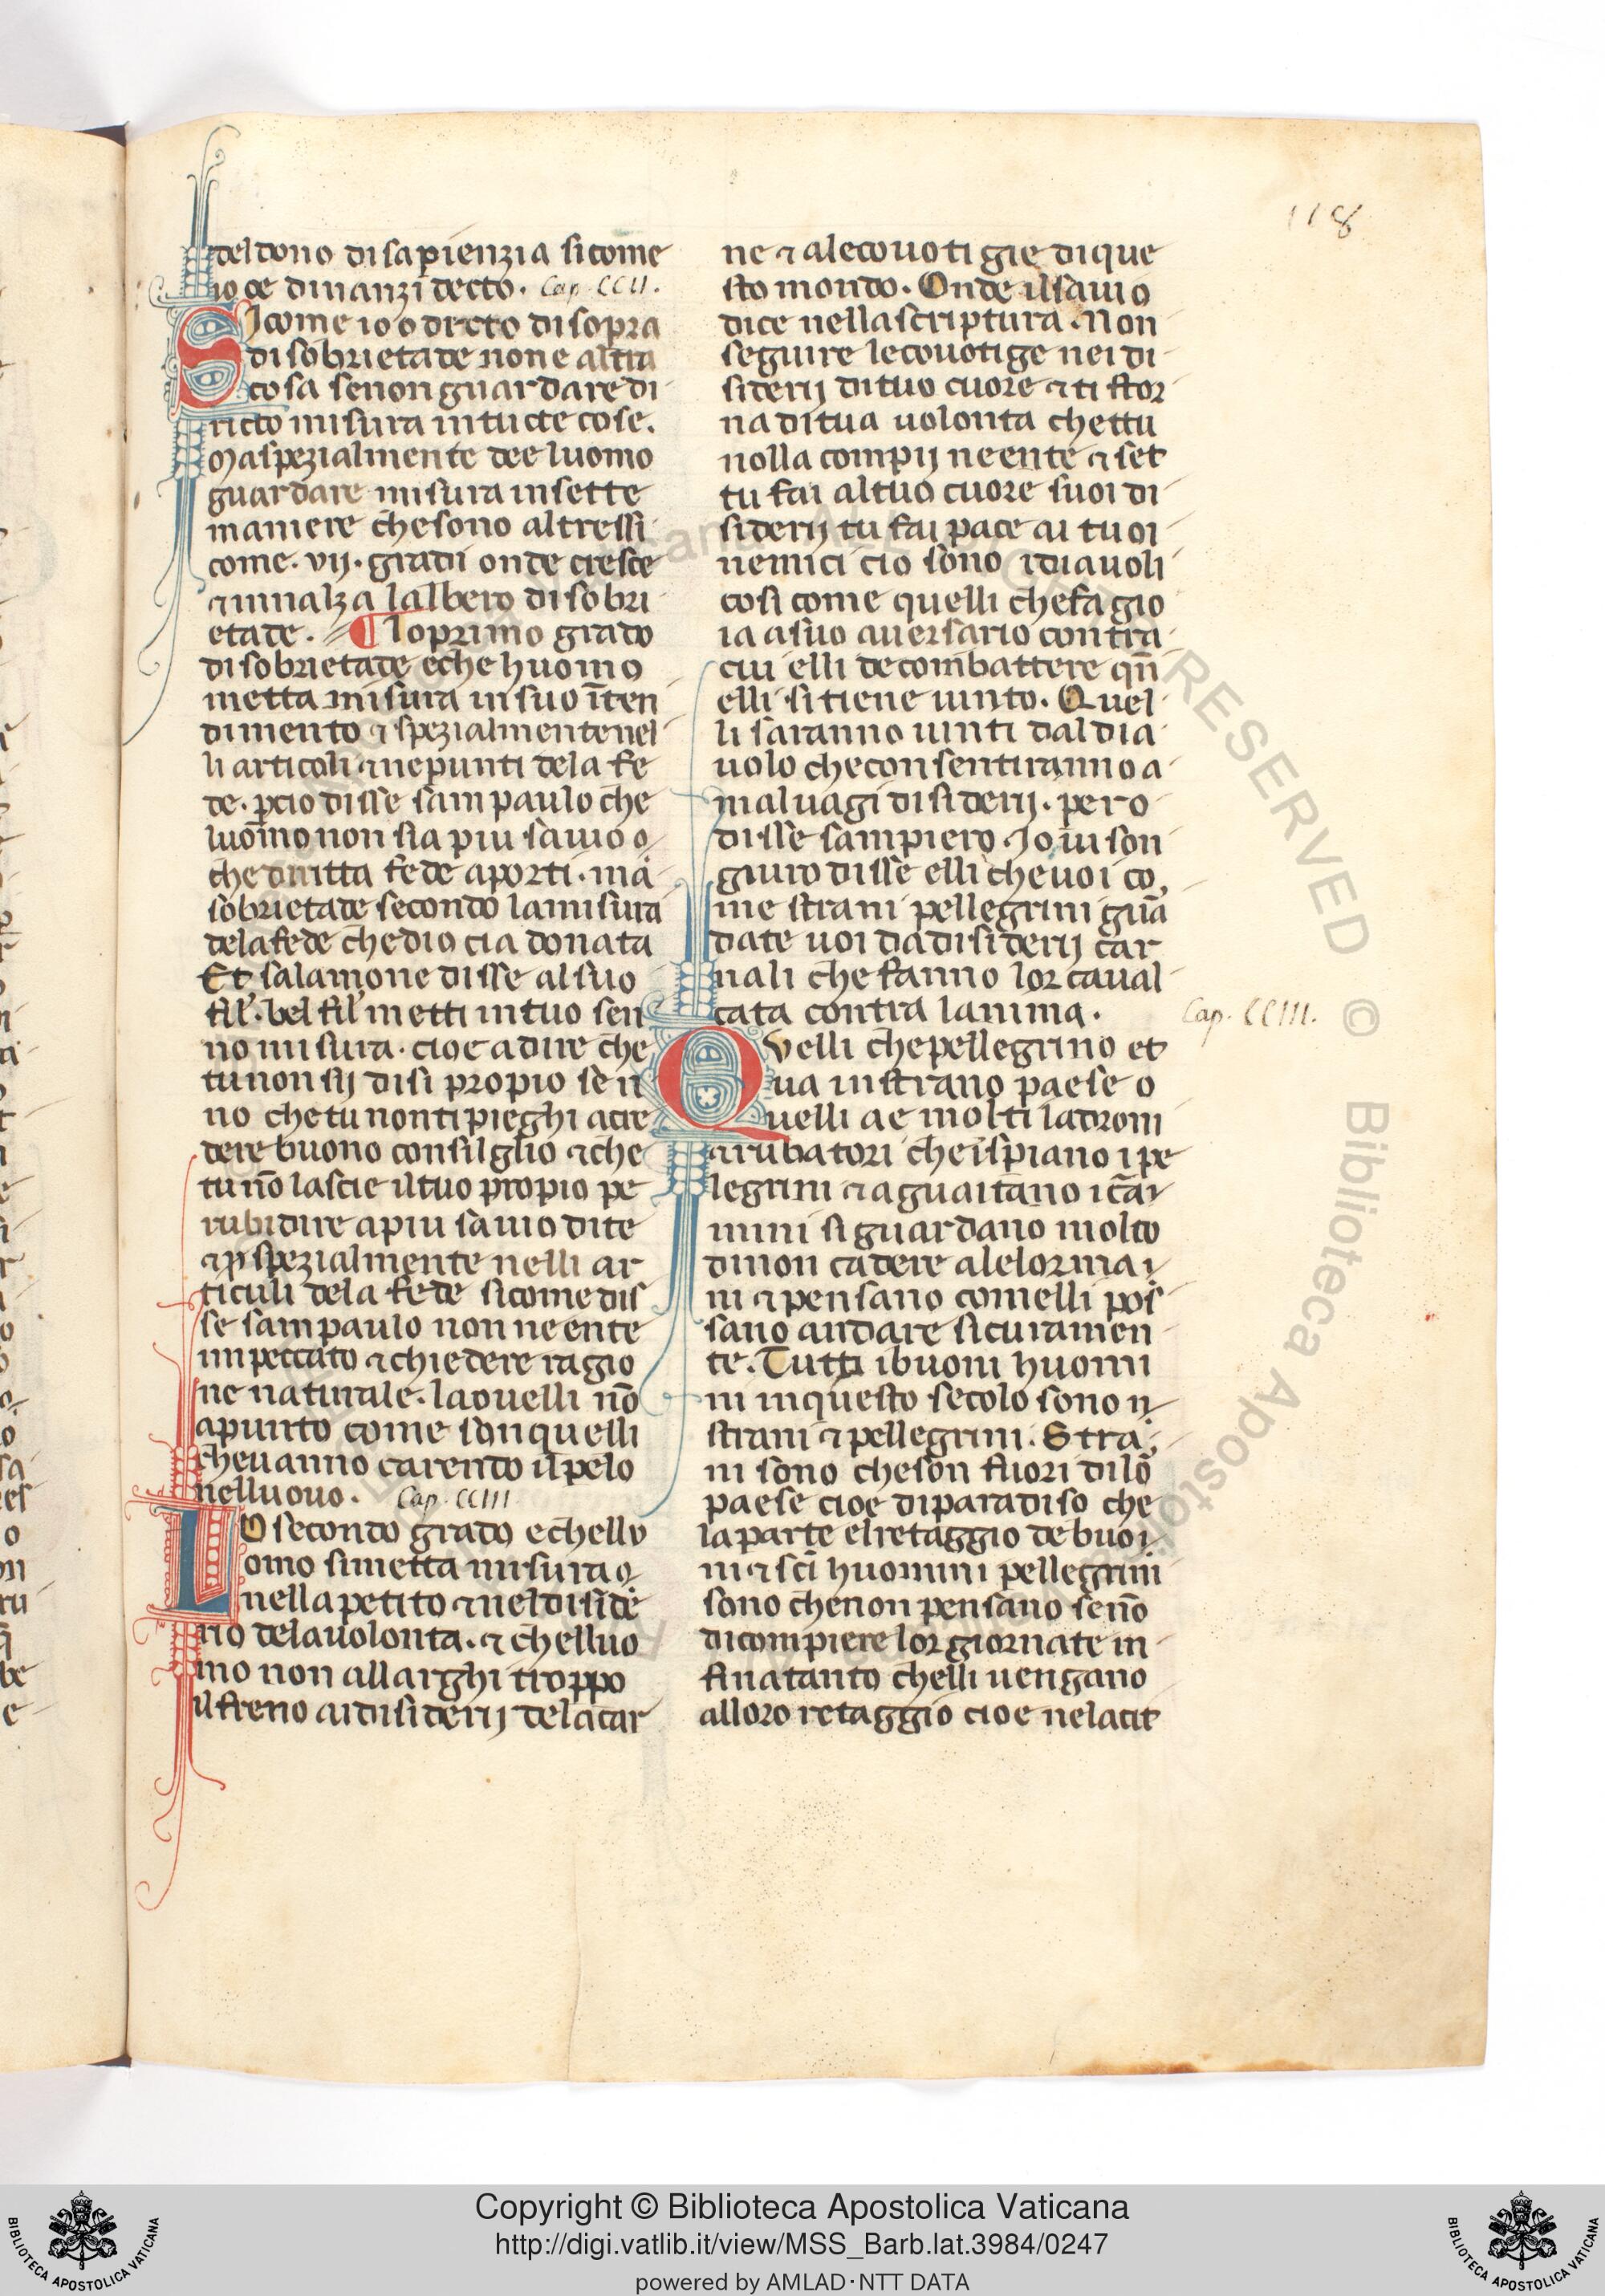 118
del dono di sapienzia sicome
io oe dinanzi decto. Cap. CCII.
SJcome io o decto di sopra
di sobrietade non e altra
cosa senon guardare di
ricto misura in tucte cose.
Maspezialmente dee luomo
guardare misura in sette
maniere che sono altressi
come. vij. gradi onde cresce
⁊ innalza lalbero di sobri
etade. ¶ lo primo grado
di sobrietade e che huomo
metta misura in suo īten
dimento ⁊ spezialmente nel
li articoli ⁊ ne punti dela fe
de. ꝑcio disse sam paulo che
luōmo non sia piu sauio o
che diritta fede aporti. ma
sobrietade secondo la misura
dela fede che dio cia donata
Et salamone disse al suo
fil'. bel fil' metti in tuo sen
no misura. cioe a dire che
tu non sij di si propio sen
no che tu non ti pieghi a cre
dere buono consilglio ⁊ che
tu nō lascie il tuo propio pe
rubidire a piu sauio di te
⁊ ꝑ spezialmente nelli ar
ticuli dela fede sicome dis
se sam paulo non neente
im peccato ⁊ chiedere ragio
ne naturale. la ouelli nō
a punto come son quelli
che uanno carendo il pelo
nelluouo. Cap. CCIII
LO secondo grado e chellu
omo si metta misura o
nella petito ⁊ nel diside
rio dela uolonta. ⁊ chelluo
mo non allarghi troppo
il freno ai disiderij dela car
ne ⁊ ale couotigie di que
sto mondo. Onde il sauio
dice nella scriptura. Non
seguire le couotige nei di
siderij di tuo cuore ⁊ ti stor
na di tua uolonta che ttu
nolla compij neente ⁊ set
tu fai al tuo cuore suoi di
siderij tu fai pace ai tuoi
nemici cio sono i diauoli
cosi come quelli che fa gio
ia a suo auersario contra
cui elli de combattere qn̄
elli si tiene uinto. Quel
li saranno uinti dal dia
uolo che consentiranno a
maluagi disiderij. pero
disse sampiero Jo ui son
giuro disse elli che uoi co
me strani pellegrini gua
date uoi da disiderij car
nali che fanno lor caual
cata contra lanima. Cap. CCIIII.
QVelli che pellegrino et
ua in strano paese o
uelli a e molti ladroni
⁊ rubatori che ispiano i pe
legrini ⁊ aguaitano i cā
mini si guardano molto
di non cadere ale lor ma
ni ⁊ pensano comelli pos
sano andare sicuramen
te. Tutti i buoni huomi
ni in questo secolo sono
strani ⁊ pellegrini. Stra
ni sono che son fuori di lō
paese cioe di paradiso che
la parte el retaggio de buoi
ni ⁊ sc̄i huomini pellegrini
sono che non pensano senō
di compiere lor giornate in
fina tanto chelli uengano
alloro retaggio cioe nela cit
Copyright © Biblioteca Apostolica Vaticana
http://digi.vatlib.it/view/MSS_Barb.lat.3984/0247
powered by AMLAD·NTT DATA
BIBLIOTECA APOSTOLICA VATICANA
BIBLIOTECA APOSTOLICA VATICANA